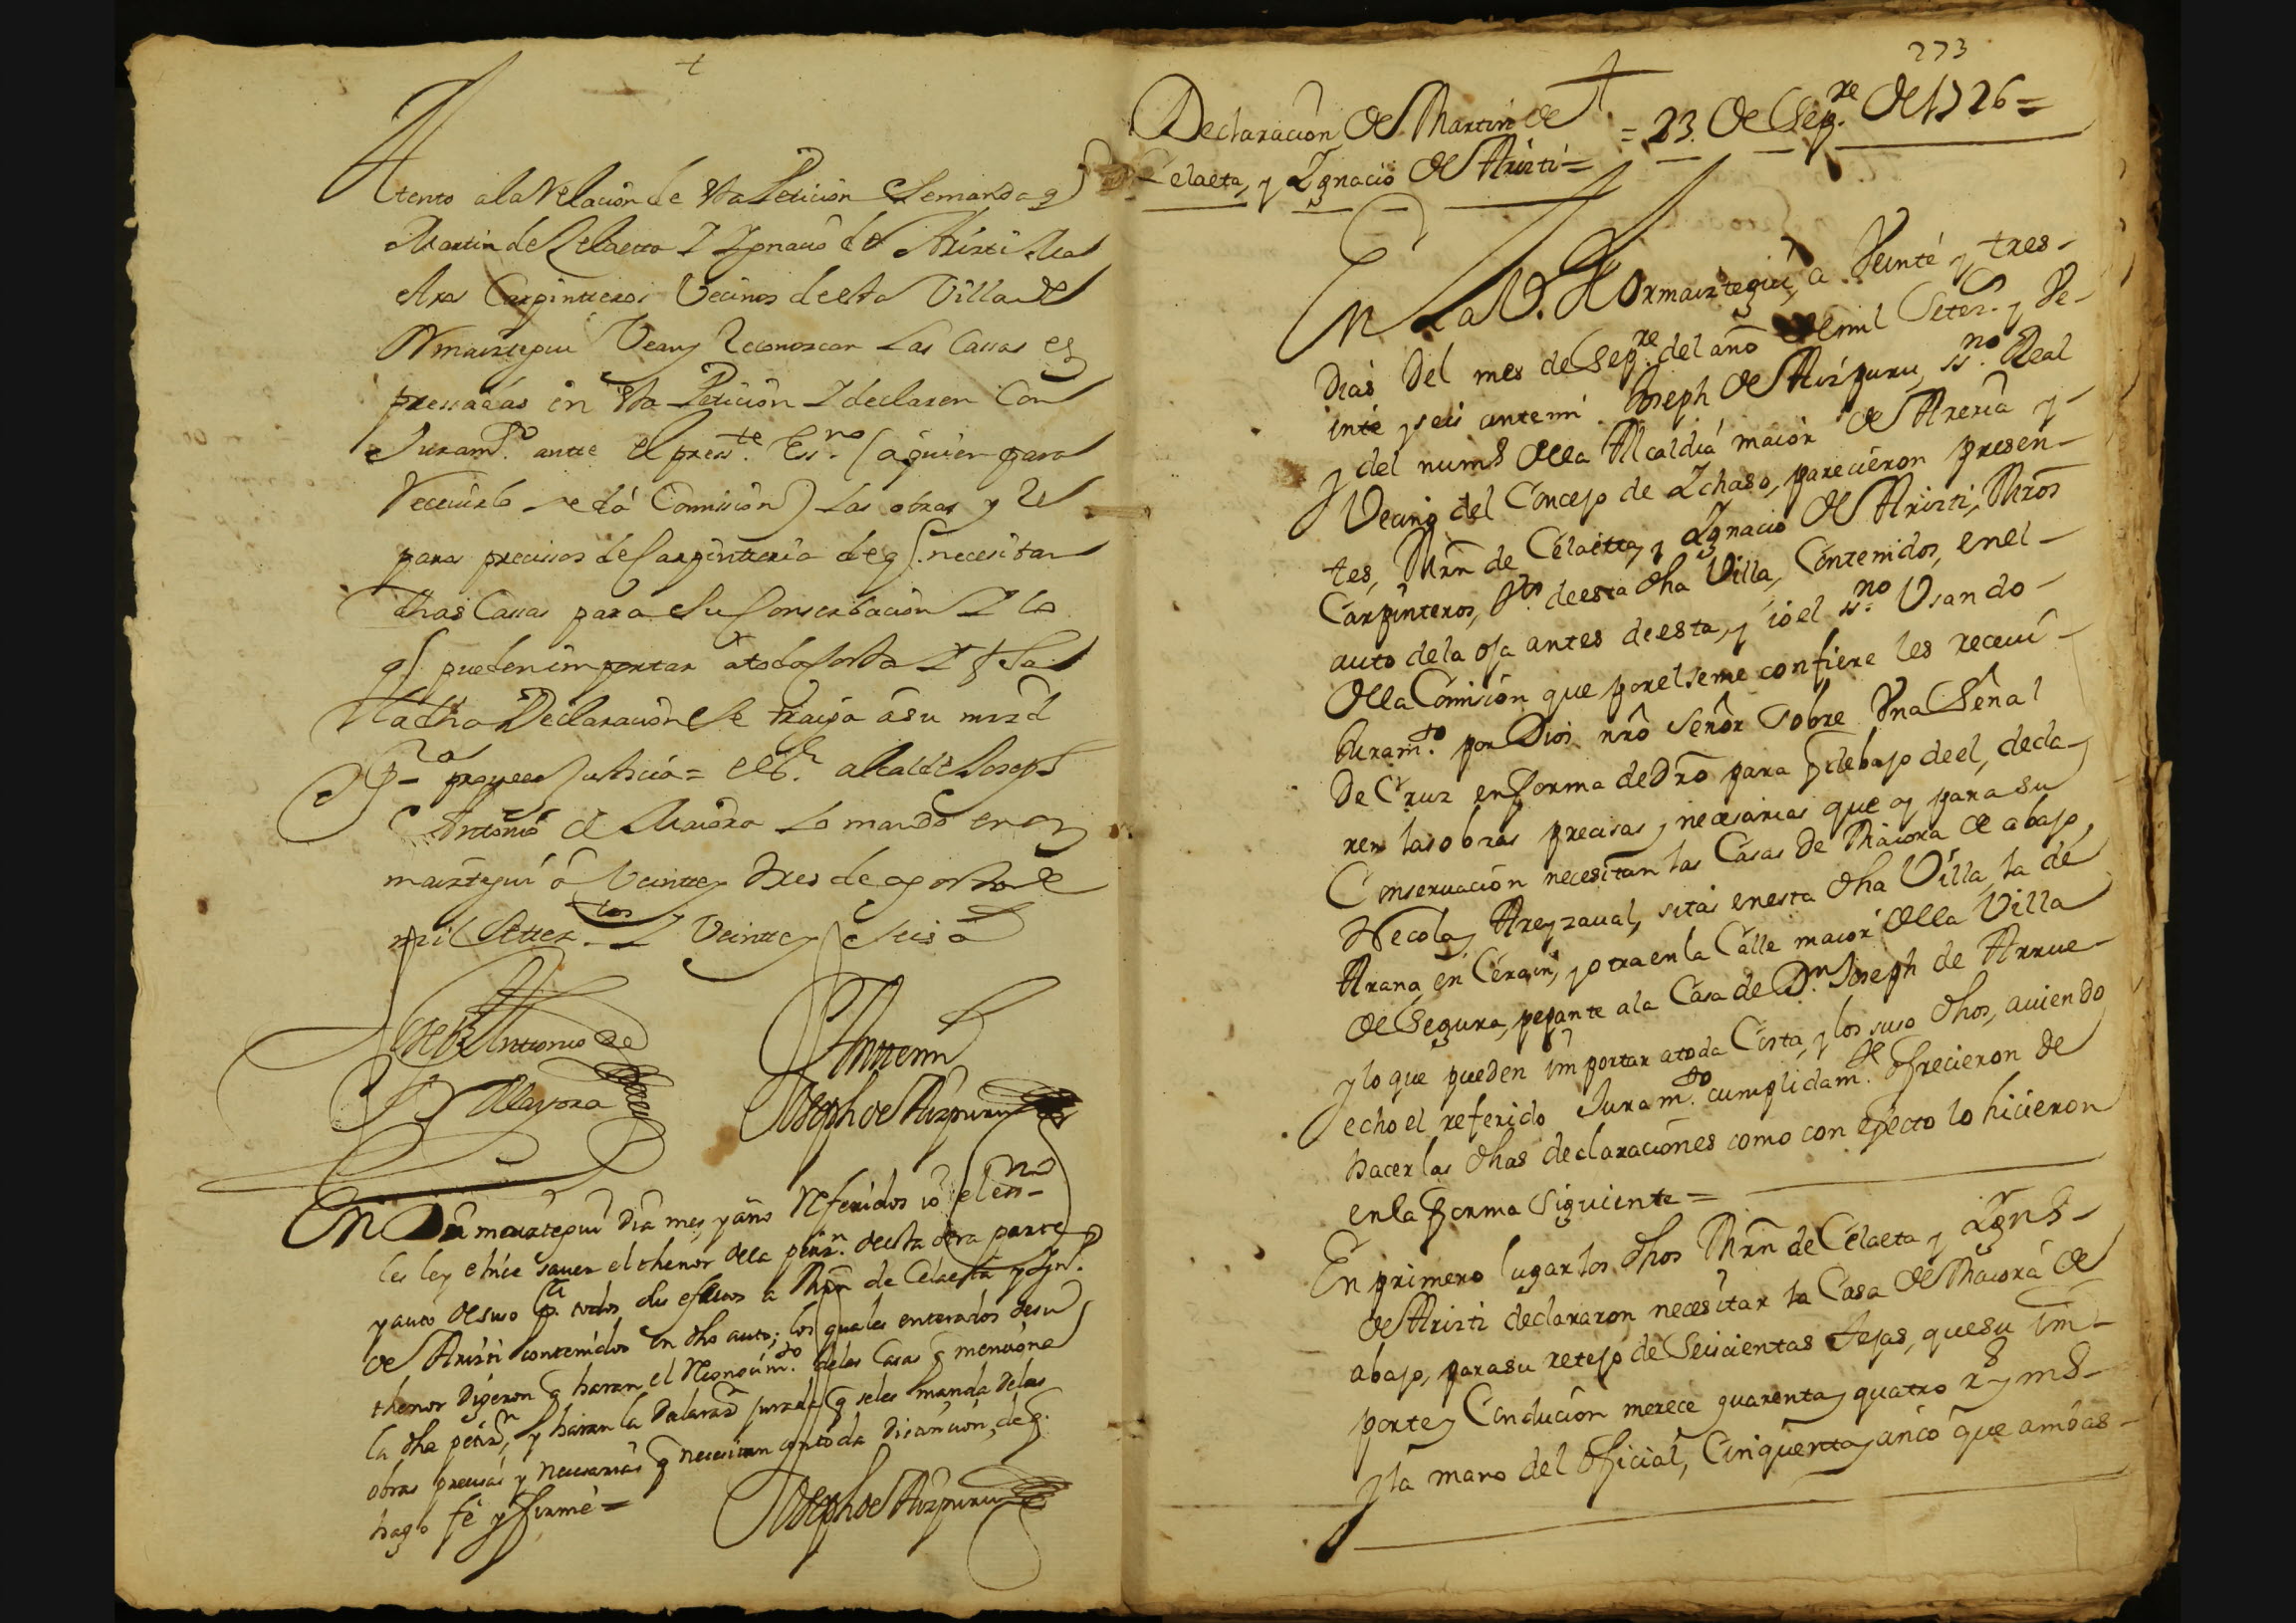 Atento a la Relacion de esta Peticion Se manda q
Martin de Zelaetta I Ignacio de Aristi Ma
estros Carpintteros Vecinos de esta Villa de
Ormaiztegui Vean y Reconozcan Las Cassas es
pressadas en esta Peticion I declaren Con
Juram.to antte el pres.te Es.no (a quien para
Receuirlo se dá Comission) Las obras y Re
paros precissos de Carpintteria de q necesitan
dhas Cassas para su Conserbacion I lo
q pueden importar á toda costa I fha
la dha Declaracion Se traiga á su mrd
p.a proveer Justicia = el S.r alcalde Joseph
Antonio de Maiora lo mandó en Or
maiztegui á Veintte y tres de agosto de
mil Settez.tos I Veintte y Seis a
Joseph Anttonio de
Mayora
Anttemi
Joseph de Aizpuru
En Ormaiztegui dia mes, y año Referidos io el ess.no
les ley e hice sauer el thenor de la petiz.n de esta otra parte
y auto de suso p.a todos sus efectos a Mrn de Celaeta y Ign.o
de Aristi contenidos en dho auto; los quales enterados de su
thenor digeron q haran el Reconocim.to de las Casas q menciona
la dha petiz.n, y haran la Declaraz.n jurada q se les manda de las
obras precisas y necesarias q necesitan con toda distincion, de q.
hago fé y firmé =
Joseph de Aizpuru
273
Declaracion de Martin de = 23. de Sep.re de 1726 =
Celaeta, y Ignacio de Aristi =
En La V. de Ormaiztegui, a Veinte y tres
dias del mes de Sep.re del año de mil Setez.s y Ve-
inte y seis ante mi Joseph de Aizpuru, ss.no Real
y del num.o de la Alcaldia maior de Areria y
Vecino del Concejo de Ichaso, parecieron presen-
tes, Mrn de Celaetta, y Ignacio de Aristi, Mros
Carpinteros, V.os de esta dha Villa, Contenidos, en el
auto de la oja antes de esta, y io el ss.no Usando
de la Comision que por el se me confiere les receuí
Juram.to por Dios nro Señor Sobre Una Señal
De Cruz en forma de Dro para q debajo de el, decla
ren las obras precisas y necesarias que oy para su
Conseruacion necesitan las Casas de Maiora de abajo,
Necola, Areyzaual, sitas en esta dha Villa, la de
Arana, en Cerain, y otra en la Calle maior de la Villa
de Segura, pegante a la Casa de D.n Joseph de Arrue
y lo que pueden importar a toda Costa, y los suso dhos, auiendo
echo el referido Juram.to cumplidam.te Ofrecieron de
hacer las dhas declaraciones como con efecto lo hicieron
en la forma Siguiente =
En primero lugar los dhos Mrn de Celaeta y Ign.o
de Aristi declararon necesitar la Casa de Maiora de
abajo, para su retejo de Seiscientas tejas, que su im-
porte y Conducion merece quarenta y quatro r.s y m.o
y la mano del Oficial, Cinquenta y cinco que ambas